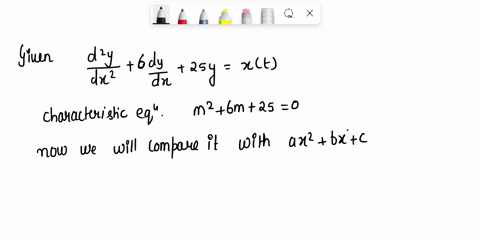 Given d²y/dx² + 6 dy/dx + 25y = x(t)
characteristic eqⁿ. m²+6m+25=0
now we will compare it with ax²+bx+c